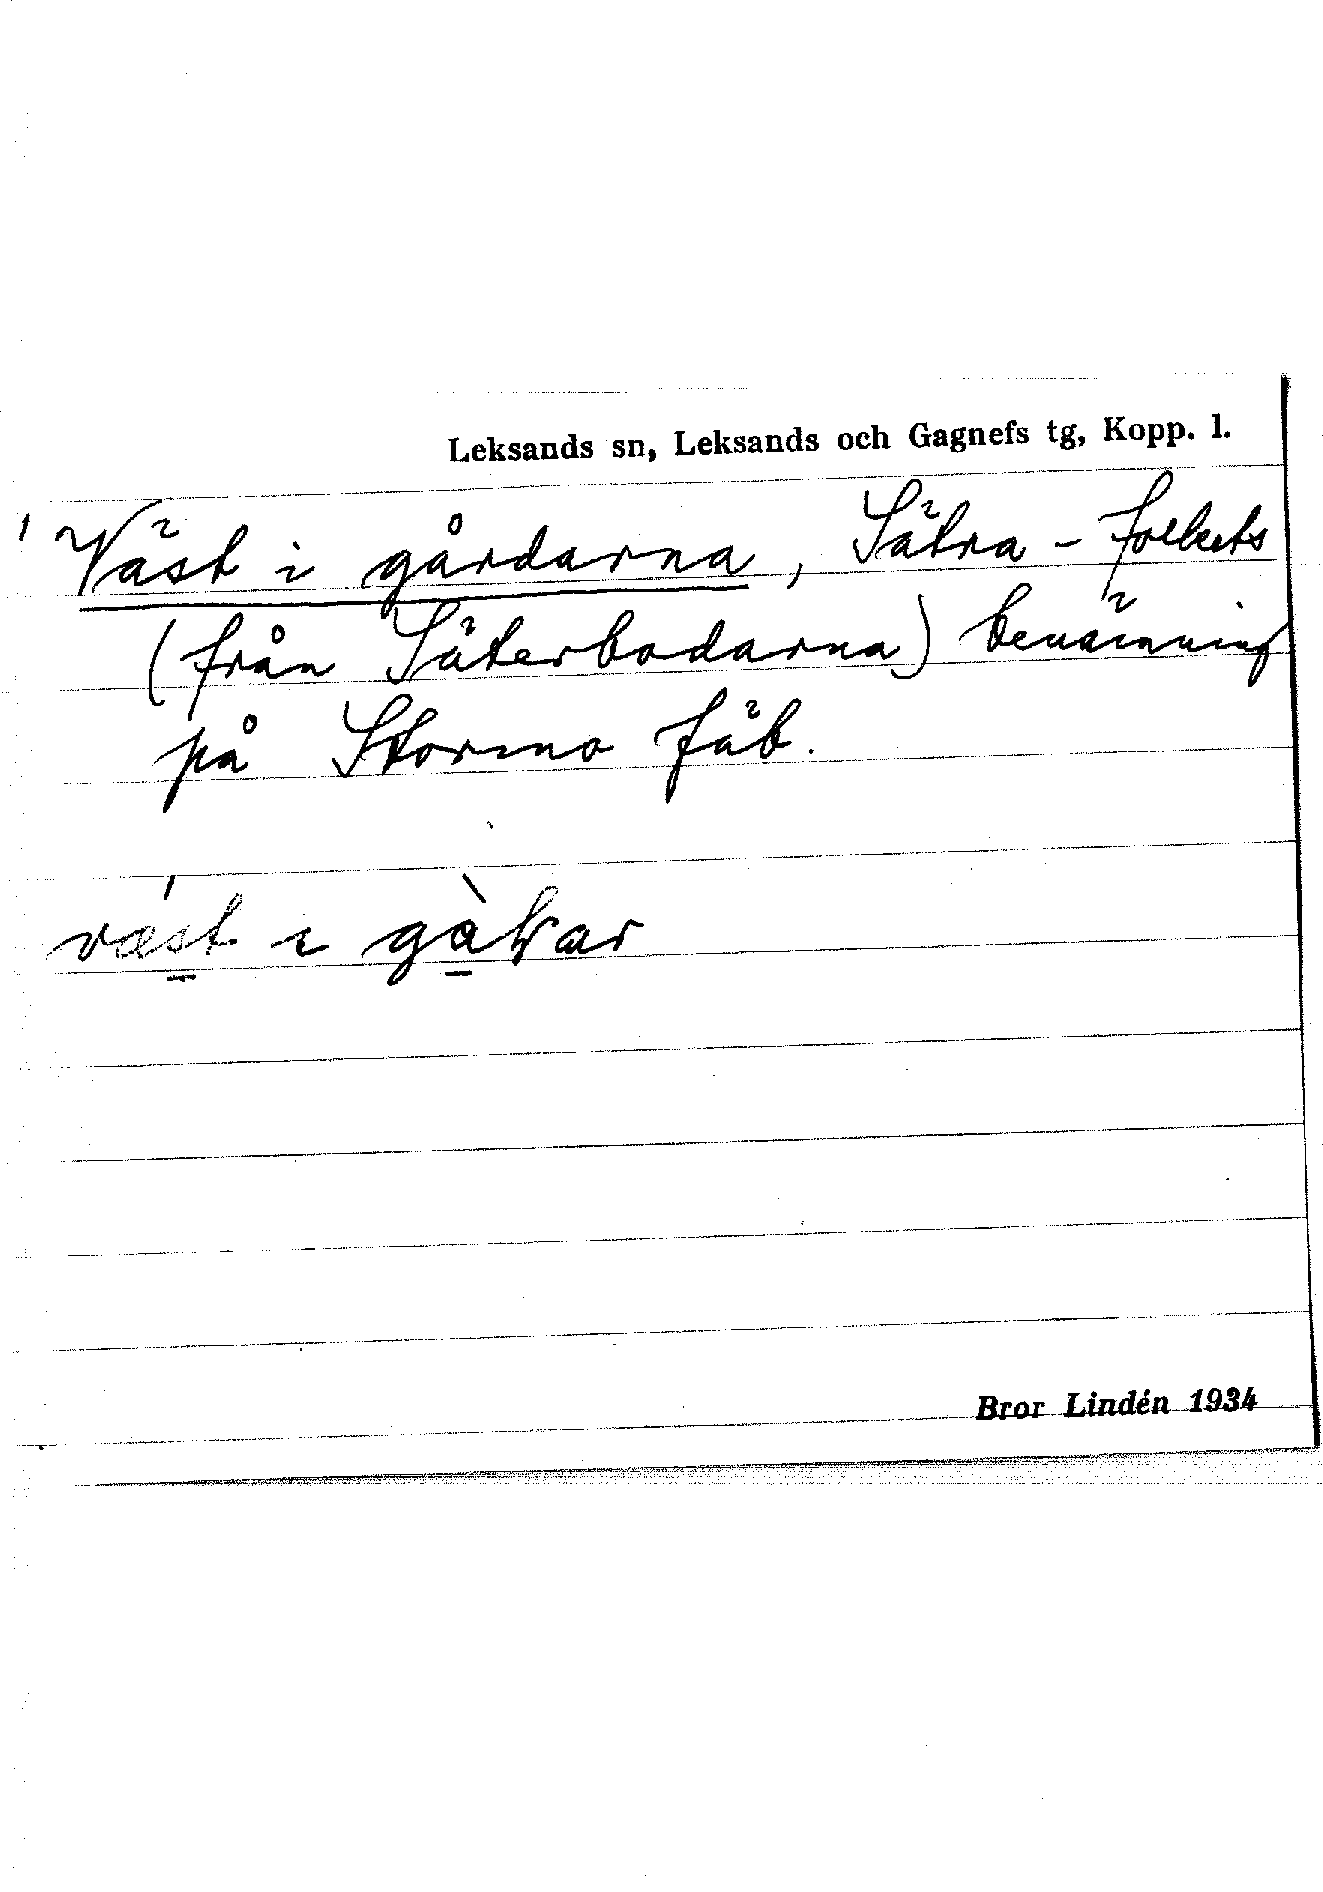 Leksands sn, Leksands och Gagnefs tg, Kopp. l.
Väst i gårdarna, Sätra-folkets
(från Säterbodarna) benämning
på Stormo fäb.
væst i
Bror Lindén 1934